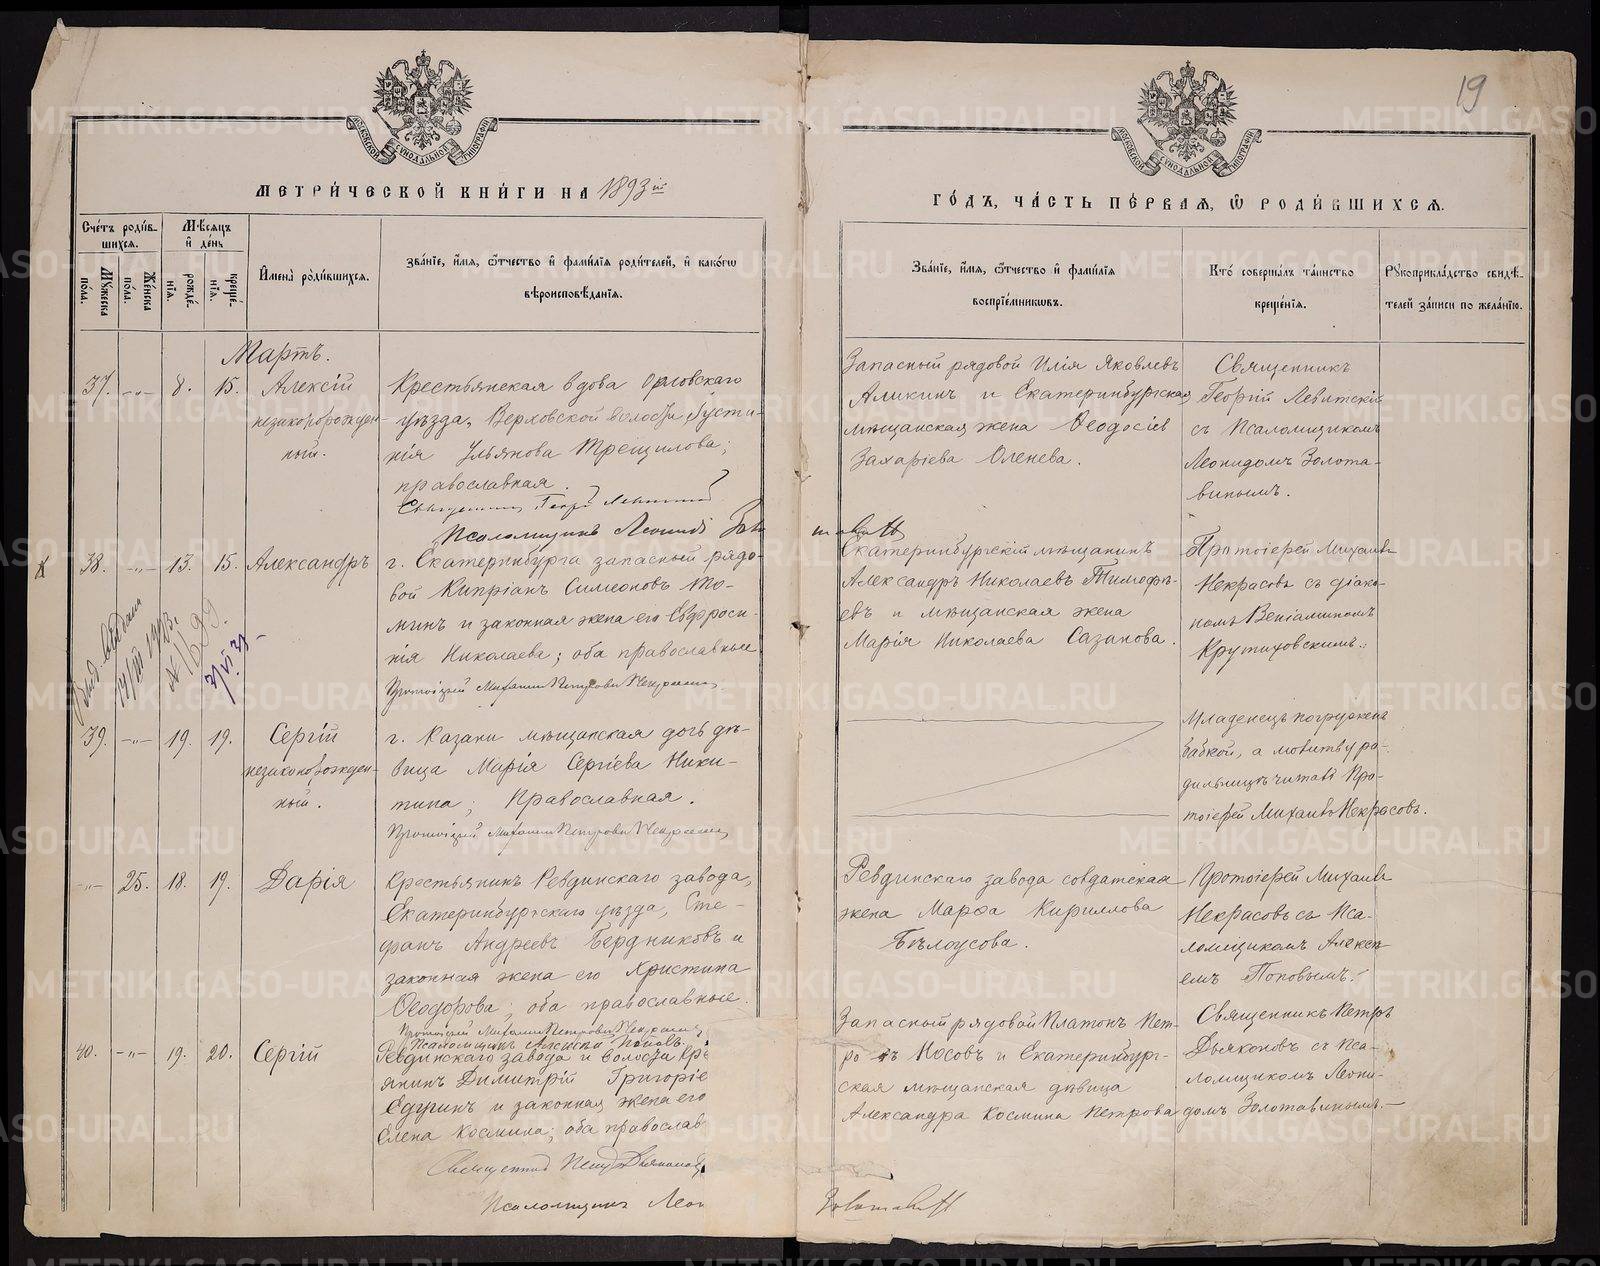 19
МЕТРИ́ЧЕСКОЙ КНИ́ГИ НА 1893 й
ГО́ДЪ, ЧА́СТЬ ПЕ́РВАЯ, Ѡ РОДИ́ВШИХСЯ.
МОСКОВСКОЙ СѴНОДАЛЬНОЙ ТИПОГРАФІИ
МОСКОВСКОЙ СѴНОДАЛЬНОЙ ТИПОГРАФІИ
Сче́тъ роди́в-
шихся.
Мѣ́сяцъ
и҆ де́нь
Мꙋжеска
по́ла.
Же́нска
по́ла.
рожде́-
нїя.
креще́-
нїя.
И҆мена̀ роди́вшихся.
Зва́нїе, и҆́мя, ѻ҆́тчество и҆ фами́лїя роди́телей, и҆ како́гѡ
вѣроисповѣ́данїя.
Зва́нїе, и҆́мя, ѻ҆́тчество и҆ фами́лїя
воспрїе́мникѡвъ.
Кто̀ соверша́лъ та́инство
креще́нїя.
Рꙋкоприкла́дство свидѣ́-
телей за́писи по жела́нїю.
Мартъ.
37. -„- 8. 15. Алексій
незаконорожден-
ный.
Крестьянская вдова Орловскаго
уѣзда, Верховской волости Густи-
нія Ульянова Трещилова;
православная.
Псаломщикъ Леонидъ Золотавинъ
Запасный рядовой Илія Яковлевъ
Аликинъ и Екатеринбургская
мѣщанская жена Ѳеодосія
Захаріева Оленева.
Священникъ
Георгій Левитскій
съ Псаломщикомъ
Леонидомъ Золота-
винымъ.
38. -„- 13. 15. Александръ
г. Екатеринбурга запасный рядо-
вой Кипріанъ Симеоновъ Ѳо-
минъ и законная жена его Евфроси-
нія Николаева; оба православные.
Протоіерей Михаилъ Петровъ Некрасовъ
Екатеринбургскій мѣщанинъ
Александръ Николаевъ Тимофѣ-
евъ и мѣщанская жена
Марія Николаева Сазанова.
Протоіерей Михаилъ
Некрасовъ съ діако-
номъ Веніаминомъ
Крутиховскимъ.
№ 1699.
39. -„- 19. 19. Сергій
незаконорожден-
ный.
г. Казани мѣщанская дочь дѣ-
вица Марія Сергіева Ники-
тина; Православная.
Протоіерей Михаилъ Петровъ Некрасовъ
Младенецъ погруженъ
бабкой, а молитву ро-
дильницѣ читалъ Про-
тоіерей Михаилъ Некрасовъ.
-„- 25. 18. 19. Дарія
Крестьянинъ Ревдинскаго завода,
Екатеринбургскаго уѣзда, Сте-
фанъ Андреевъ Бердниковъ и
законная жена его Христина
Ѳеодорова; оба православные.
Протоіерей Михаилъ Петровъ Некрасовъ
Псаломщикъ Алексѣй Поповъ.
Ревдинскаго завода солдатская
жена Марѳа Кириллова
Бѣлоусова.
Протоіерей Михаилъ
Некрасовъ съ Пса-
ломщикомъ Алексѣ-
емъ Поповымъ.
40. -„- 19. 20. Сергій
Ревдинскаго завода и волости Кре
янинъ Димитрій Григоріе
Едугинъ и законная жена его
Елена Космина; оба православ
Священникъ Петръ Дьяконовъ
Псаломщикъ Леон
Золотавинъ
Запасный рядовой Платонъ Пет-
ровъ Носовъ и Екатеринбург-
ская мѣщанская дѣвица
Александра Космина Петрова
Священникъ Петръ
Дьяконовъ съ Пса-
ломщикомъ Леони-
домъ Золотавинымъ.
METRIKI.GASO-URAL.RU